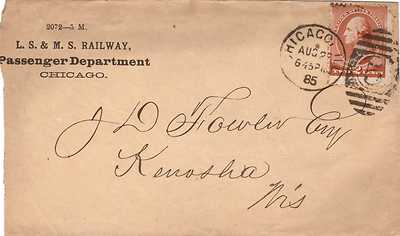 2072—5 M.
L. S. & M. S. RAILWAY,
Passenger Department
CHICAGO.
CHICAGO
AUG 22
6 45 P
85
J D Fowler Esq
Kenosha
Wis